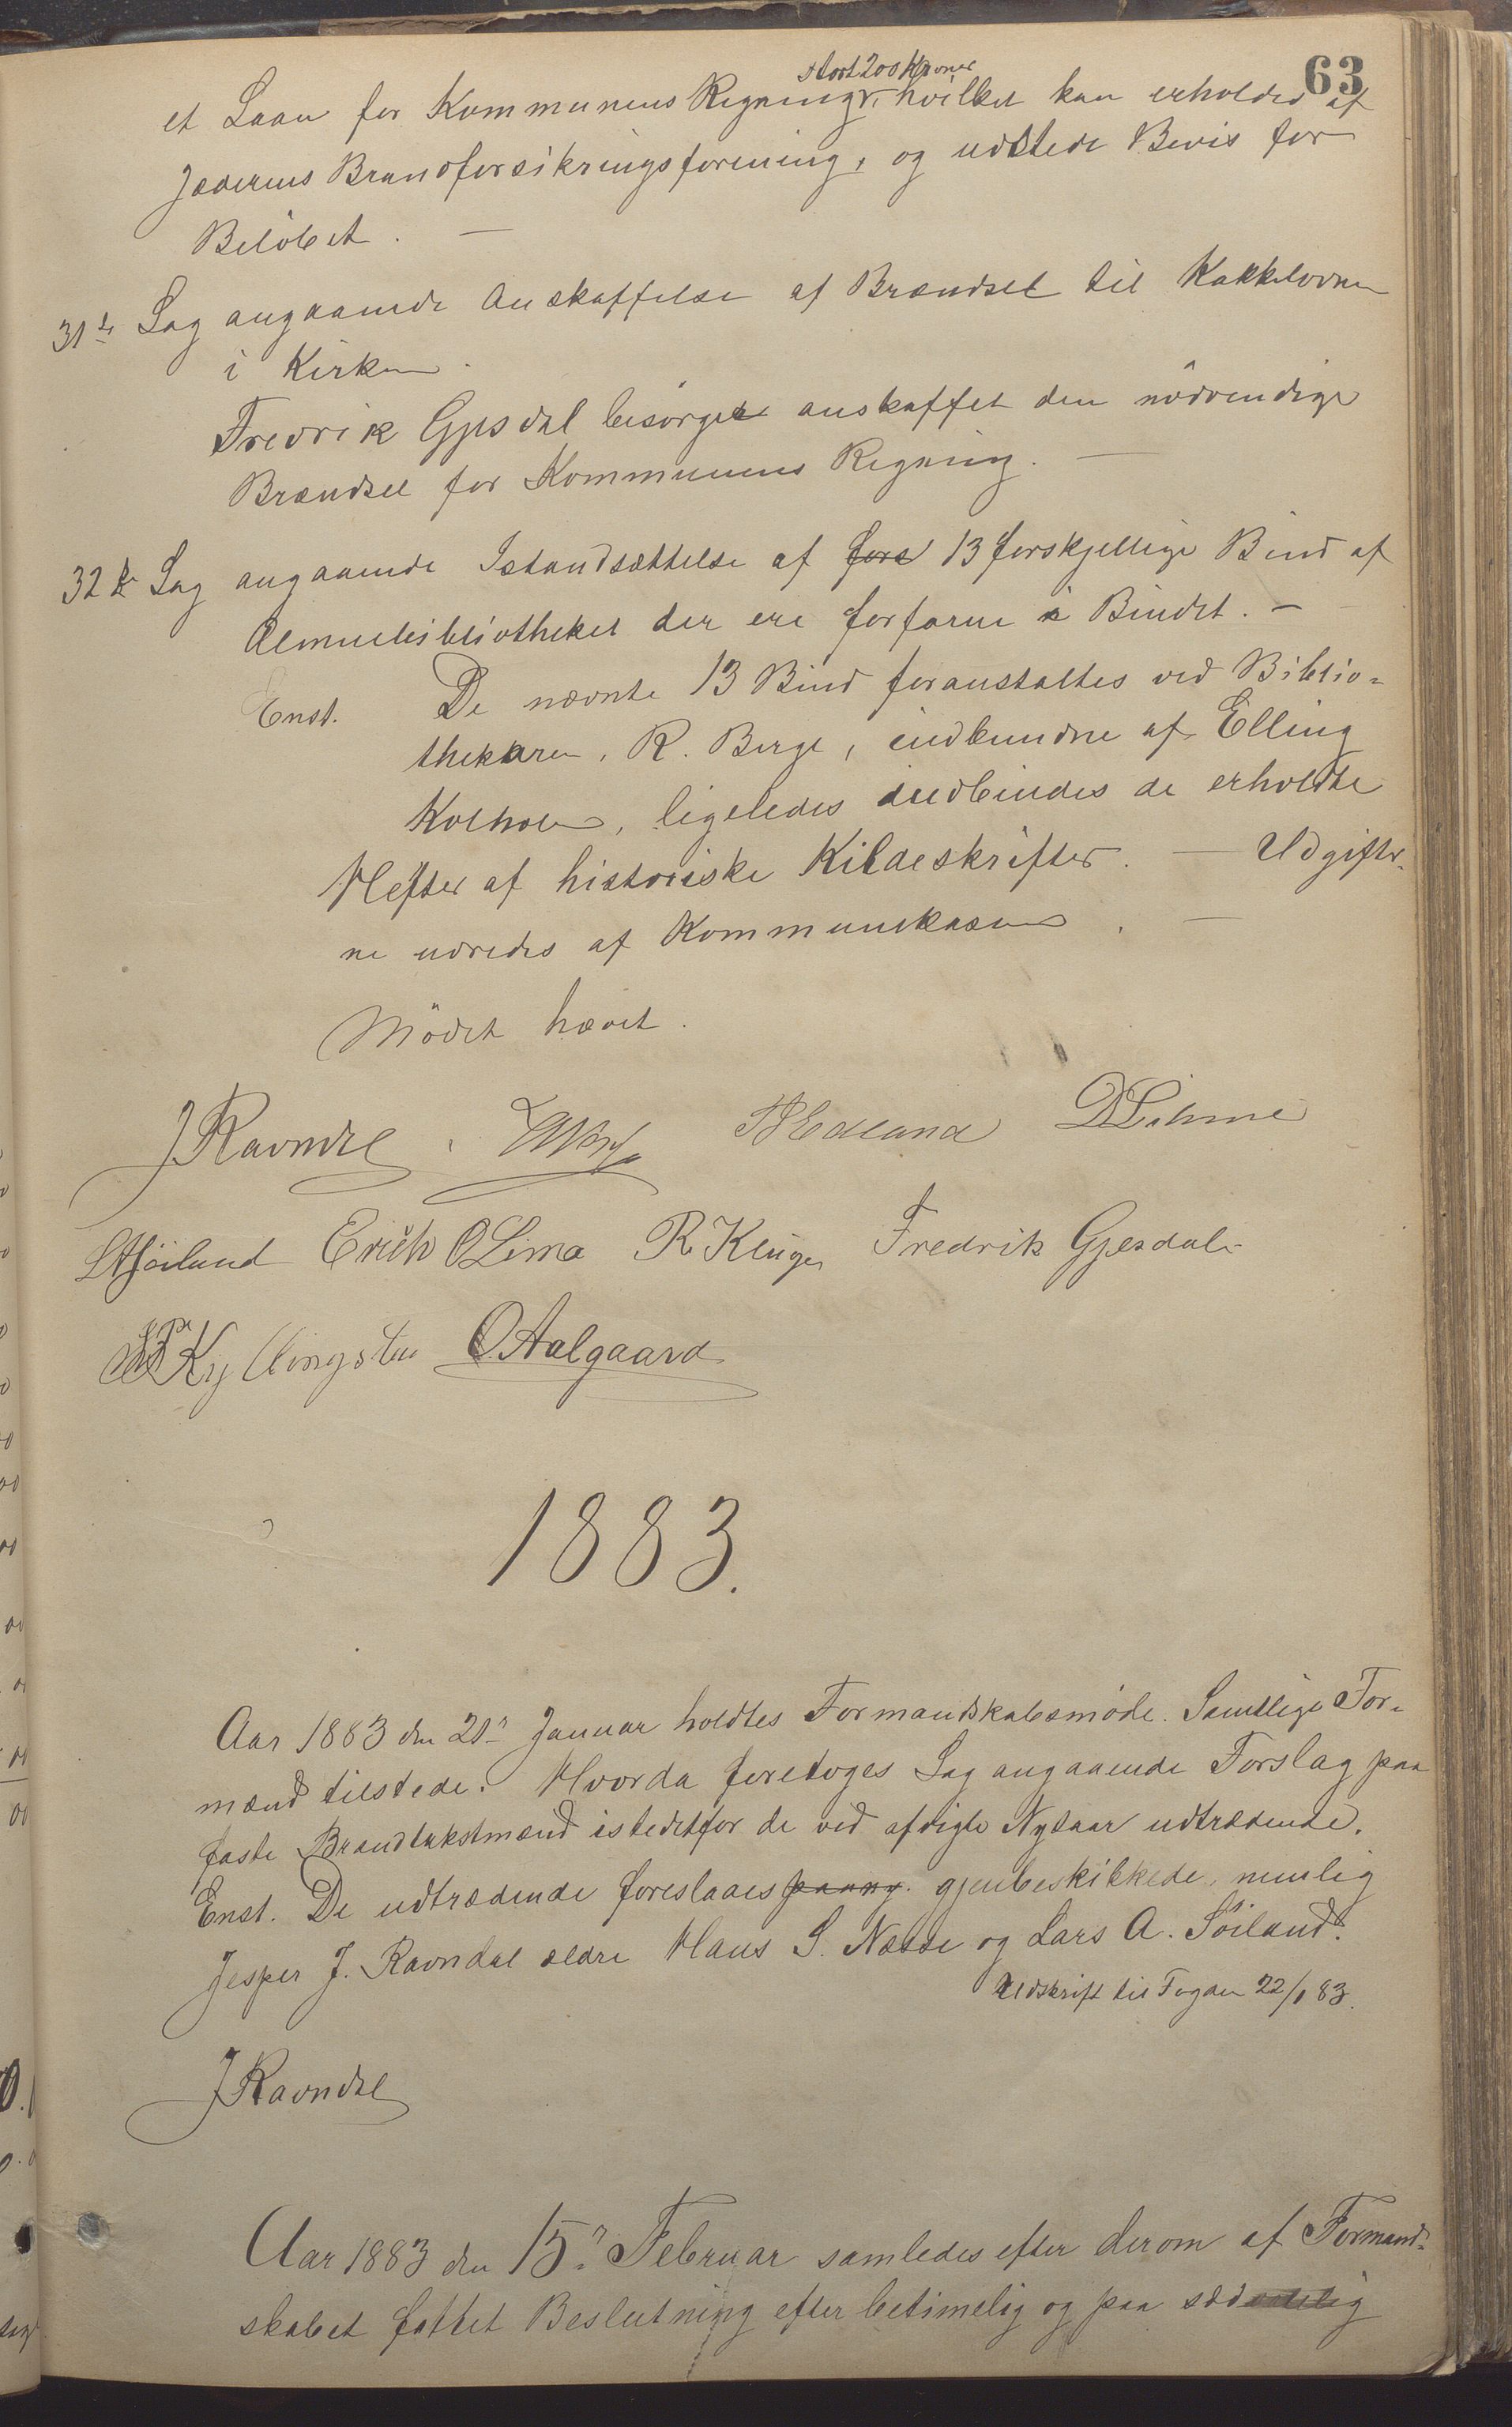 63
stort 200 Kroner
et Laan for Kommunens Regning, hvilket kan erholdes af
Jæderens Brandforsikringsforening, og udstede Bevis for
Beløbet. —
31te Sag angaaende Anskaffelse af Brændsel til Kakkelovnen
i Kirken.
Fredrik Gjesdal besørger anskaffet den nödvendige
Brændsel for Kommunens Regning. —
32te Sag angaaende Istandsættelse af fors 13 forskjellige Bind af
Almuebibliotheket der ere forfarne i Bindet. —
Enst. De nævnte 13 Bind foranstaltes ved Biblio-
thekaren, R. Berge, indbundne af Elling
Kolholm, ligeledes indbindes de erholdte
Hefter af historiske Kildeskrifter. — Udgifter-
ne udredes af Kommunekassen. —
Mödet hævet.
J Ravndal T Edland D Lihme
L A Söiland Erich O Lima R Kluge Fredrik Gjesdal
Kyllingstad O. Aalgaard
1883.
Aar 1883 den 21de Januar holdtes Formandskabsmöde. Samtlige For-
mænd tilstede. Hvorda foretoges Sag angaaende Forslag paa
faste Brandtakstmænd istedetfor de ved afvigte Nytaar udtrædende.
Enst. De udtrædende foreslaaes paany gjenbeskikkede, nemlig
Jesper J. Ravndal ældre Hans S. Næsse og Lars A. Söiland.
Udskrift til Fogden 22/1 83.
J Ravndal
Aar 1883 den 15de Februar samledes efter derom af Formand-
skabet fattet Beslutning efter betimelig og paa sædvanlig